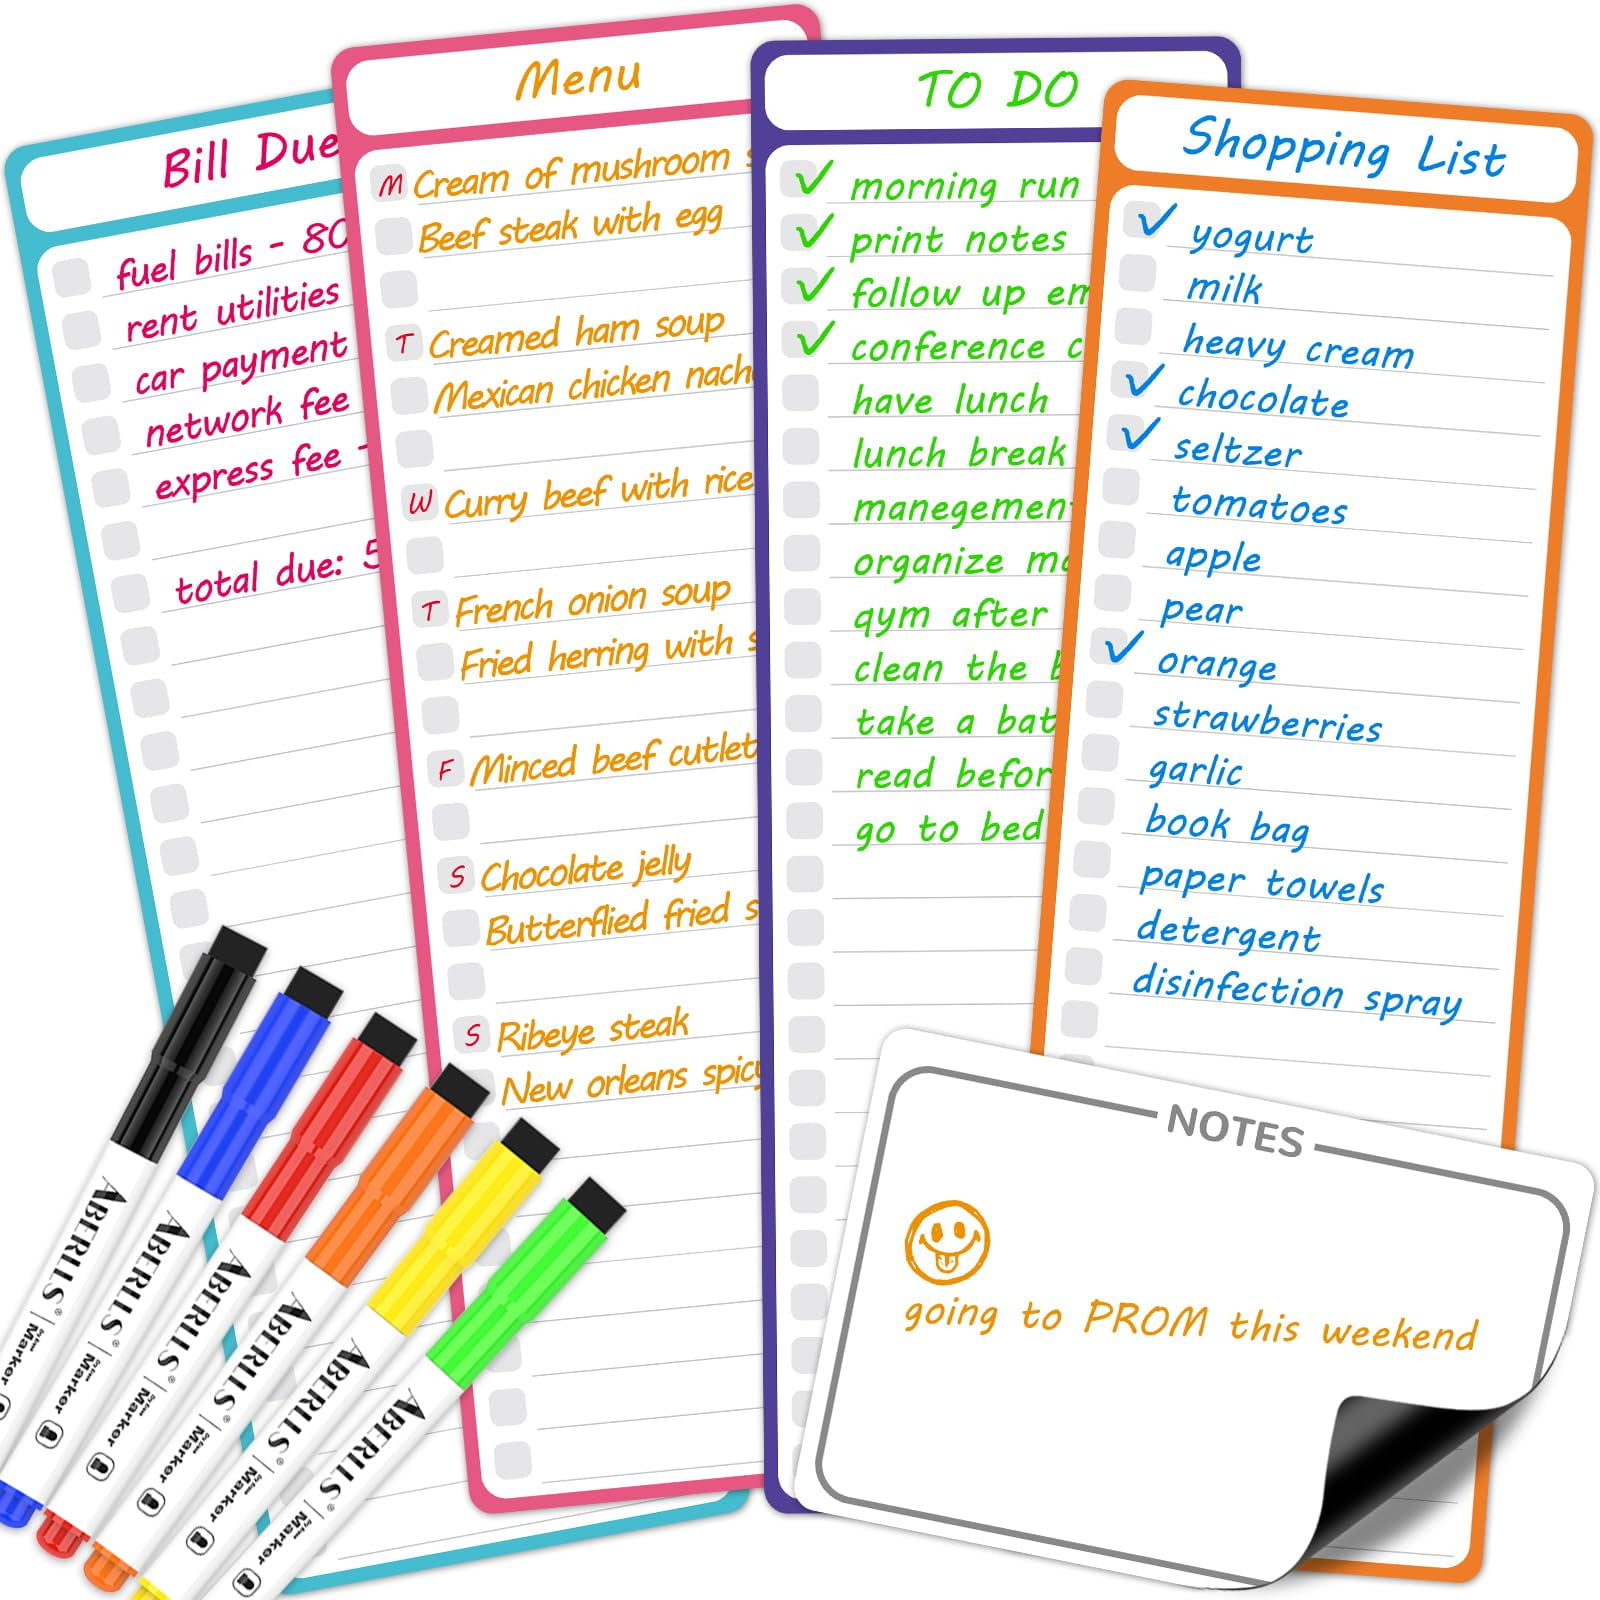 Bill Due
fuel bills - 80
rent utilities
car payment
network fee
express fee -
total due: 5
Menu
M Cream of mushroom s
Beef steak with egg
T Creamed ham soup
Mexican chicken nach
W Curry beef with rice
T French onion soup
Fried herring with s
F Minced beef cutlet
S Chocolate jelly
Butterflied fried s
S Ribeye steak
New orleans spicy
TO DO
✓ morning run
✓ print notes
✓ follow up em
✓ conference c
have lunch
lunch break
manegement
organize ma
qym after
clean the b
take a bat
read befor
go to bed
Shopping List
✓ yogurt
milk
heavy cream
✓ chocolate
✓ seltzer
tomatoes
apple
pear
✓ orange
strawberries
garlic
book bag
paper towels
detergent
disinfection spray
NOTES
going to PROM this weekend
ABERLLS® Dry Erase Marker
ABERLLS® Dry Erase Marker
ABERLLS® Dry Erase Marker
ABERLLS® Dry Erase Marker
ABERLLS® Dry Erase Marker
ABERLLS® Dry Erase Marker